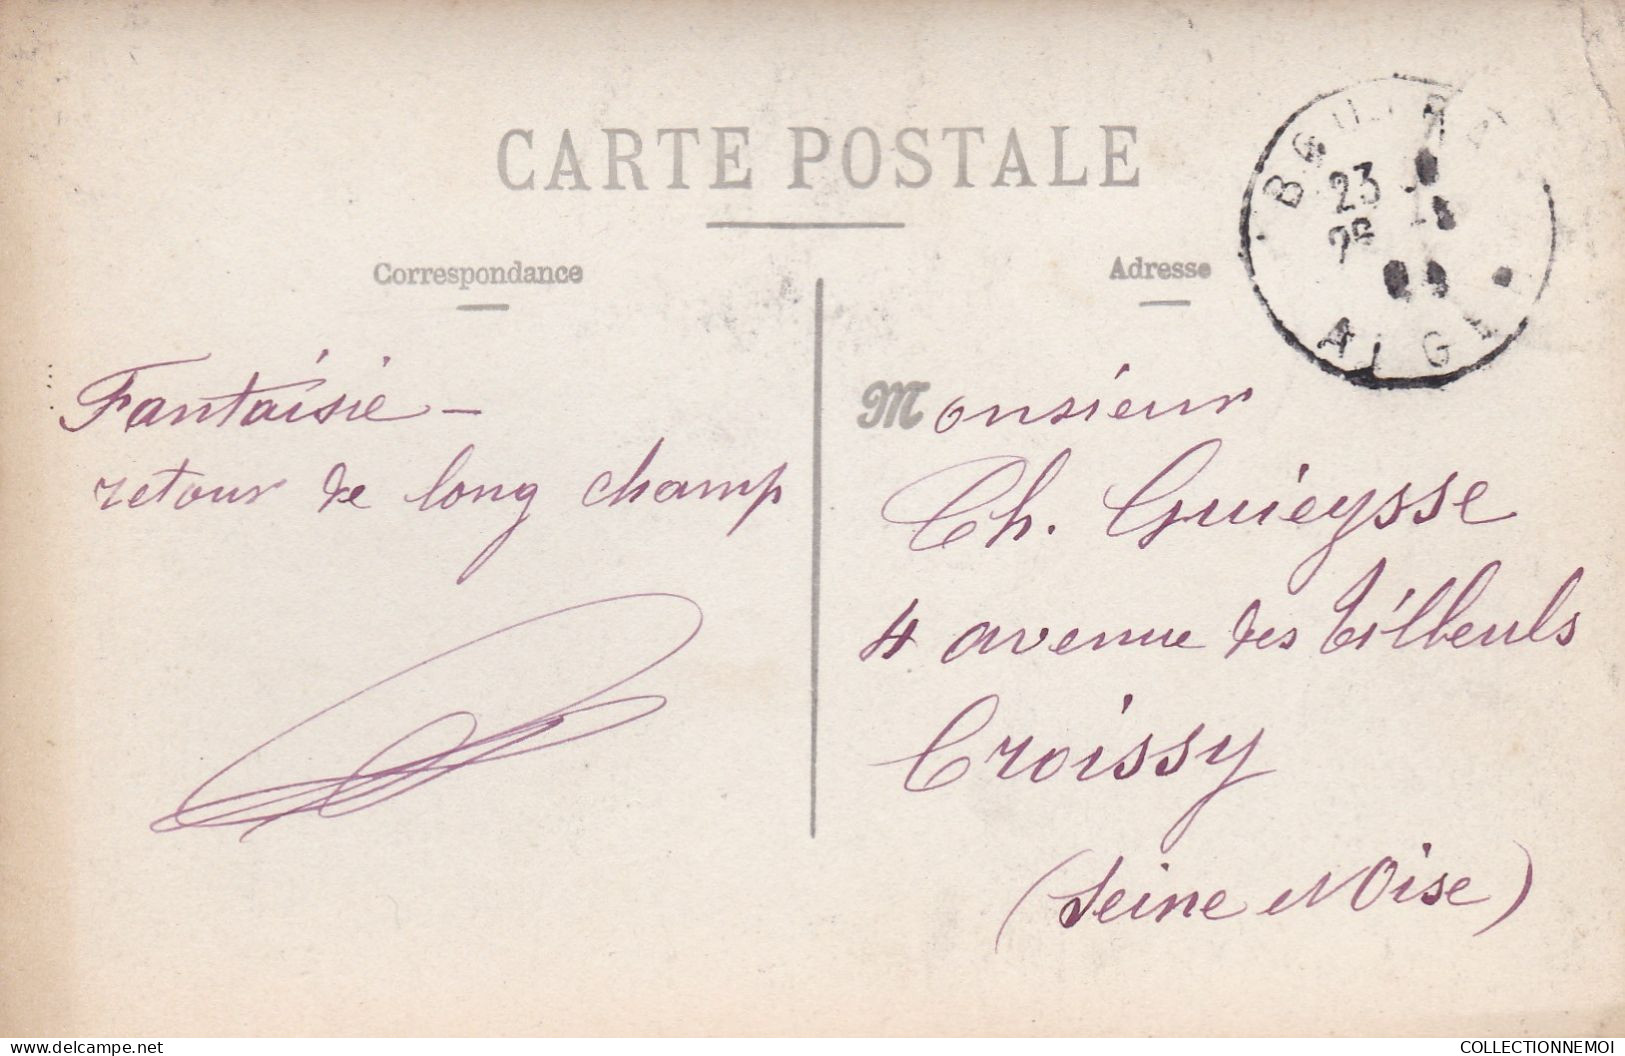 CARTE POSTALE
Correspondance
Adresse
23
ALGER
Fantaisie –
retour de long champ
Monsieur
Ch. Guieysse
4 avenue des tilleuls
Croissy
(Seine et Oise)
www.delcampe.net
COLLECTIONNEMOI